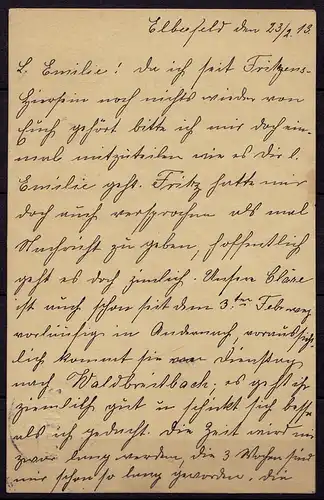 Elberfeld den 23/2. 13.
L. Emilie! Da ich seit Fritzens-
Hiersein noch nichts wieder von
Euch gehört bitte ich mir doch ein-
mal mitzuteilen wie es dir l.
Emilie geht. Fritz hatte mir
doch auch versprochen als mal
Nachricht zu geben, hoffentlich
geht es doch ziemlich. Unsere Clare
ist auch schon seit dem 3.ten Feb. weg
vorläufig in Andernach, voraussicht-
lich kommt sie Dienstag
nach Waldbreitbach; es geht ihr
ziemlich gut u schickt sich besser
als ich gedacht. Die Zeit wird mir
zwar lang werden, die 3 Wochen sind
mir schon so lang geworden, die